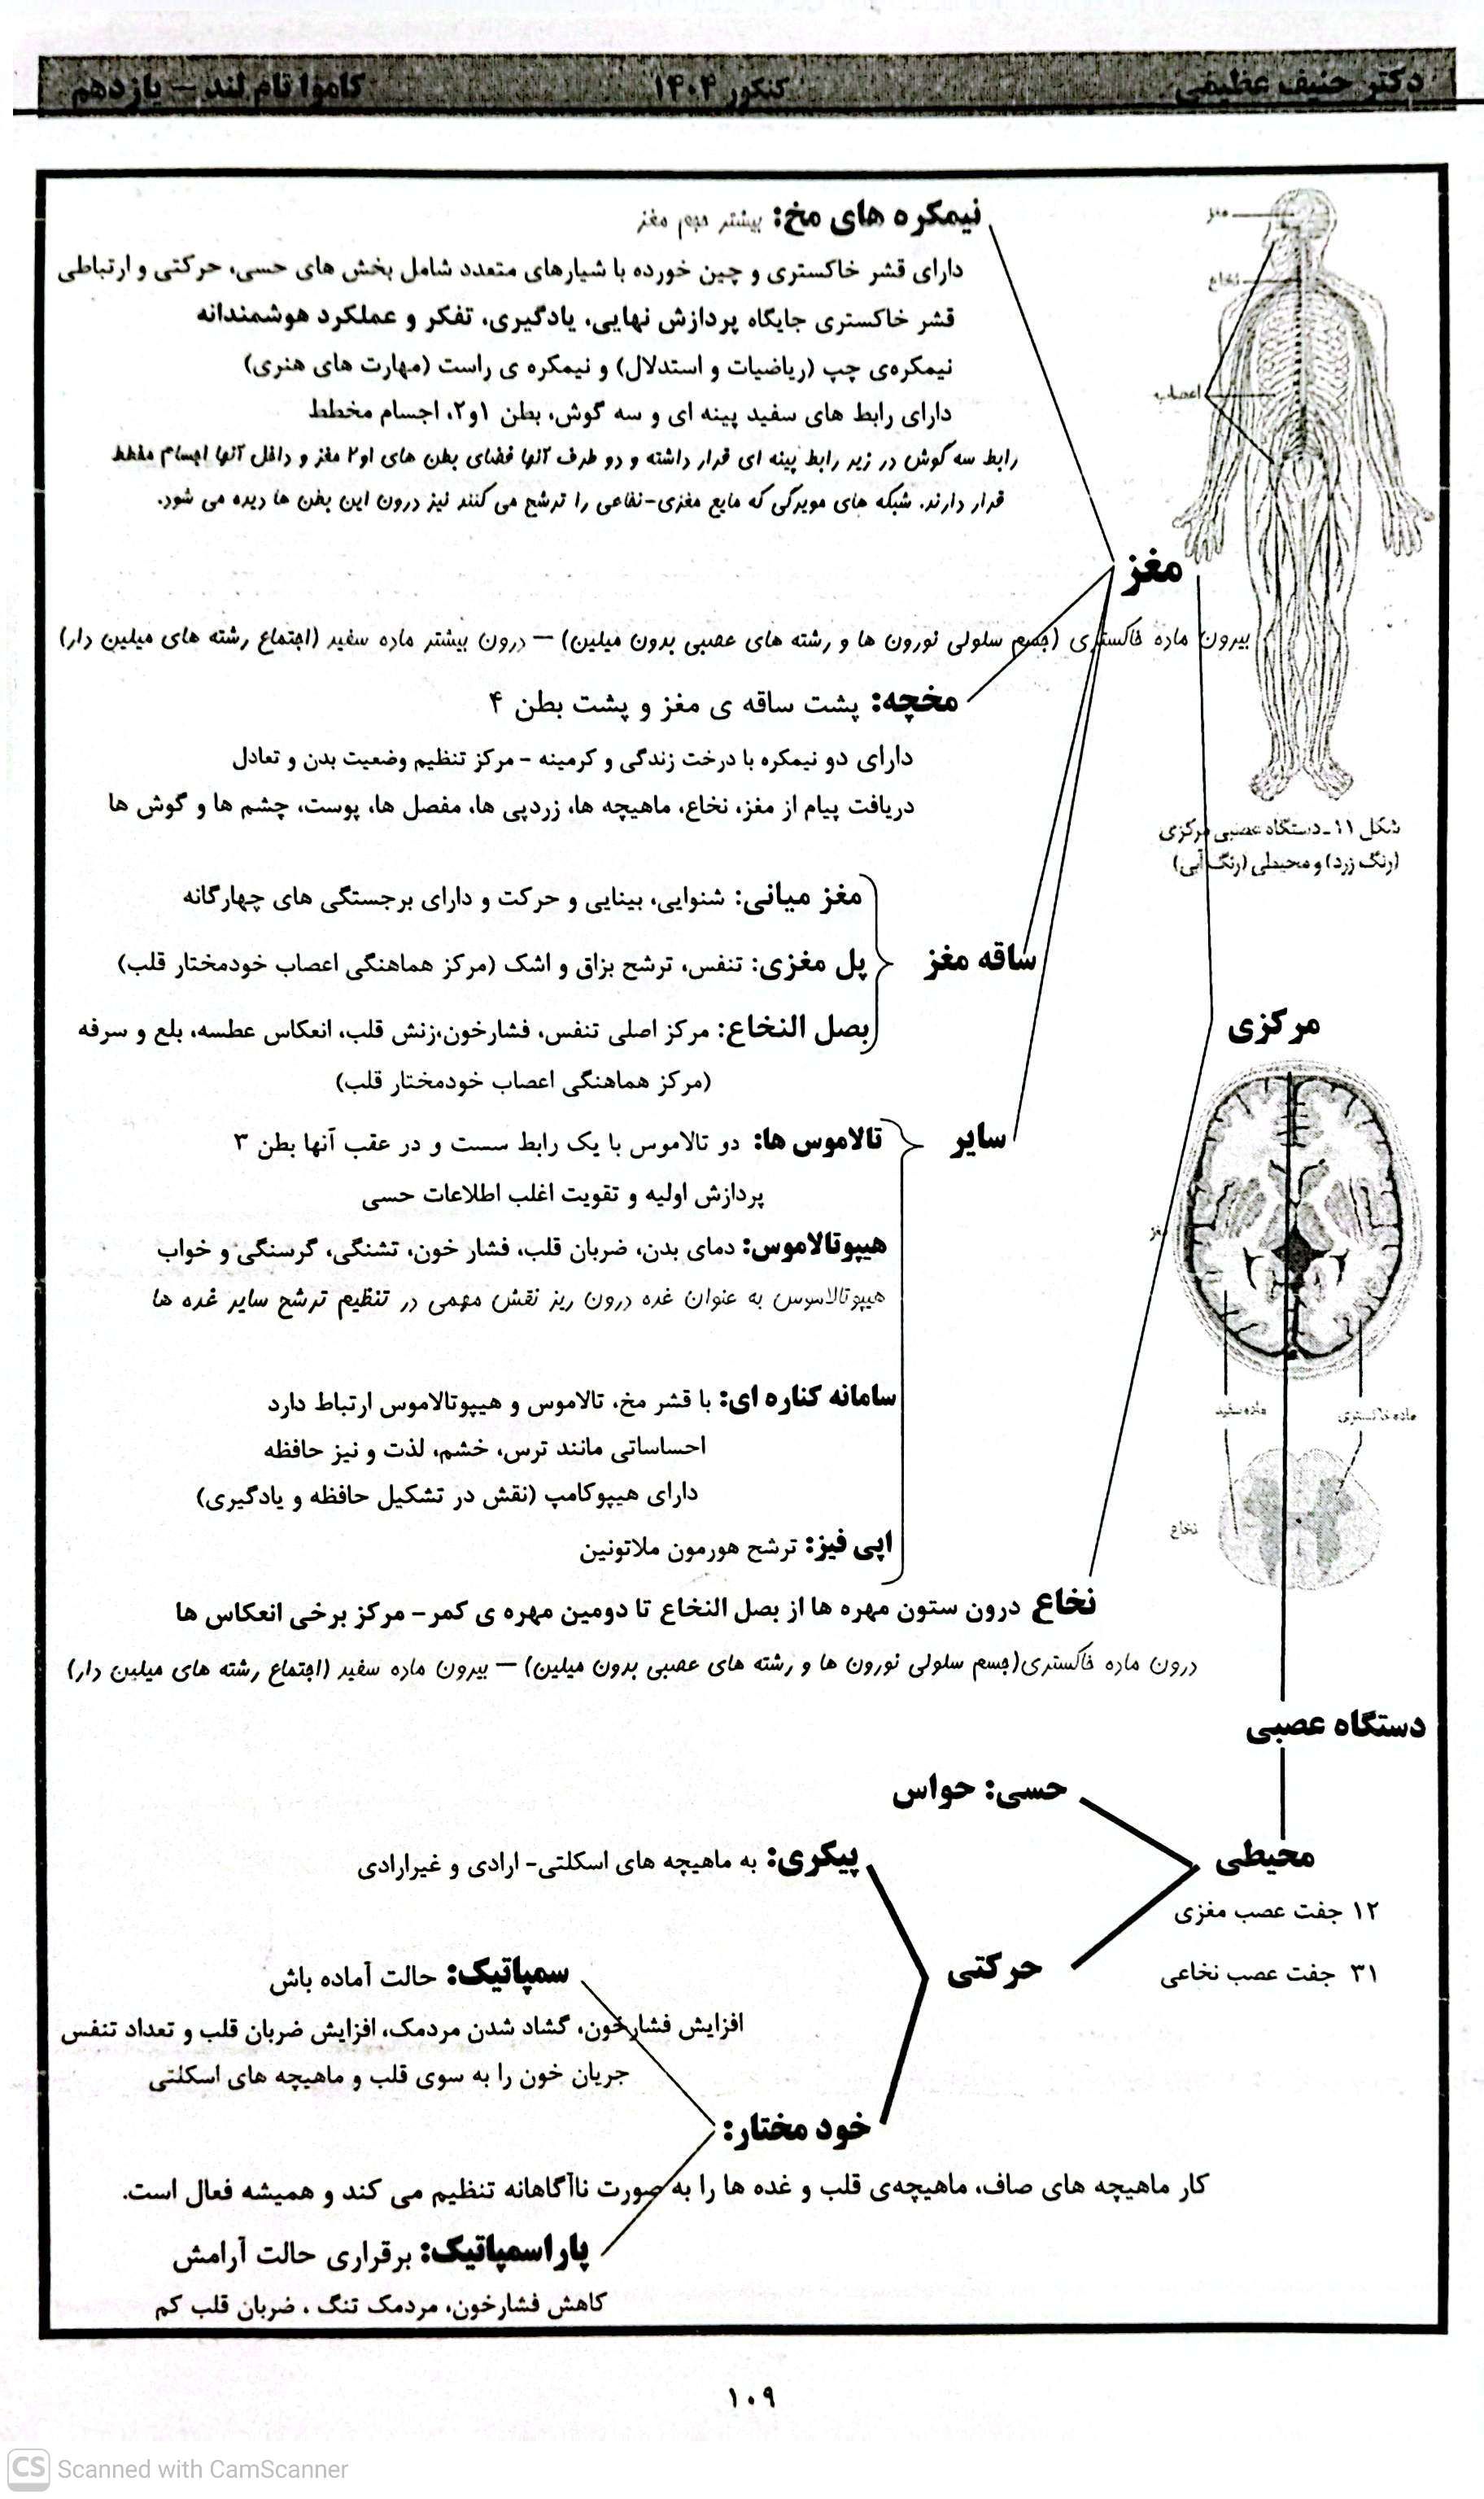 دکتر حنیف عظیمی
کنکور ۱۴۰۴
کاموا تام لند – یازدهم
نیمکره های مخ: بیشتر حجم مغز
دارای قشر خاکستری و چین خورده با شیارهای متعدد شامل بخش های حسی، حرکتی و ارتباطی
قشر خاکستری جایگاه پردازش نهایی، یادگیری، تفکر و عملکرد هوشمندانه
نیمکره‌ی چپ (ریاضیات و استدلال) و نیمکره ی راست (مهارت های هنری)
دارای رابط های سفید پینه ای و سه گوش، بطن ۱و۲، اجسام مخطط
رابط سه گوش در زیر رابط پینه ای قرار داشته و دو طرف آنها فضای بطن های ۱و۲ مغز و داخل آنها اجسام مخطط
قرار دارند. شبکه های مویرگی که مایع مغزی-نخاعی را ترشح می کنند نیز درون این بطن ها دیده می شود.
مغز
نخاع
اعصاب
مغز
بیرون ماده خاکستری (جسم سلولی نورون ها و رشته های عصبی بدون میلین) – درون بیشتر ماده سفید (اجتماع رشته های میلین دار)
مخچه: پشت ساقه ی مغز و پشت بطن ۴
دارای دو نیمکره با درخت زندگی و کرمینه - مرکز تنظیم وضعیت بدن و تعادل
دریافت پیام از مغز، نخاع، ماهیچه ها، زردپی ها، مفصل ها، پوست، چشم ها و گوش ها
شکل ۱۱ـ دستگاه عصبی مرکزی
(رنگ زرد) و محیطی (رنگ آبی)
ساقه مغز
مغز میانی: شنوایی، بینایی و حرکت و دارای برجستگی های چهارگانه
پل مغزی: تنفس، ترشح بزاق و اشک (مرکز هماهنگی اعصاب خودمختار قلب)
بصل النخاع: مرکز اصلی تنفس، فشارخون،زنش قلب، انعکاس عطسه، بلع و سرفه
(مرکز هماهنگی اعصاب خودمختار قلب)
مرکزی
سایر
تالاموس ها: دو تالاموس با یک رابط سست و در عقب آنها بطن ۳
پردازش اولیه و تقویت اغلب اطلاعات حسی
هیپوتالاموس: دمای بدن، ضربان قلب، فشار خون، تشنگی، گرسنگی و خواب
هیپوتالاموس به عنوان غده درون ریز نقش مهمی در تنظیم ترشح سایر غده ها
سامانه کناره ای: با قشر مخ، تالاموس و هیپوتالاموس ارتباط دارد
احساساتی مانند ترس، خشم، لذت و نیز حافظه
دارای هیپوکامپ (نقش در تشکیل حافظه و یادگیری)
اپی فیز: ترشح هورمون ملاتونین
مغز
ماده سفید
ماده خاکستری
نخاع
نخاع درون ستون مهره ها از بصل النخاع تا دومین مهره ی کمر- مرکز برخی انعکاس ها
درون ماده خاکستری(جسم سلولی نورون ها و رشته های عصبی بدون میلین) – بیرون ماده سفید (اجتماع رشته های میلین دار)
دستگاه عصبی
محیطی
۱۲ جفت عصب مغزی
۳۱ جفت عصب نخاعی
حسی: حواس
حرکتی
پیکری: به ماهیچه های اسکلتی- ارادی و غیرارادی
سمپاتیک: حالت آماده باش
افزایش فشارخون، گشاد شدن مردمک، افزایش ضربان قلب و تعداد تنفس
جریان خون را به سوی قلب و ماهیچه های اسکلتی
خود مختار:
کار ماهیچه های صاف، ماهیچه‌ی قلب و غده ها را به صورت ناآگاهانه تنظیم می کند و همیشه فعال است.
پاراسمپاتیک: برقراری حالت آرامش
کاهش فشارخون، مردمک تنگ ، ضربان قلب کم
۱۰۹
CS Scanned with CamScanner